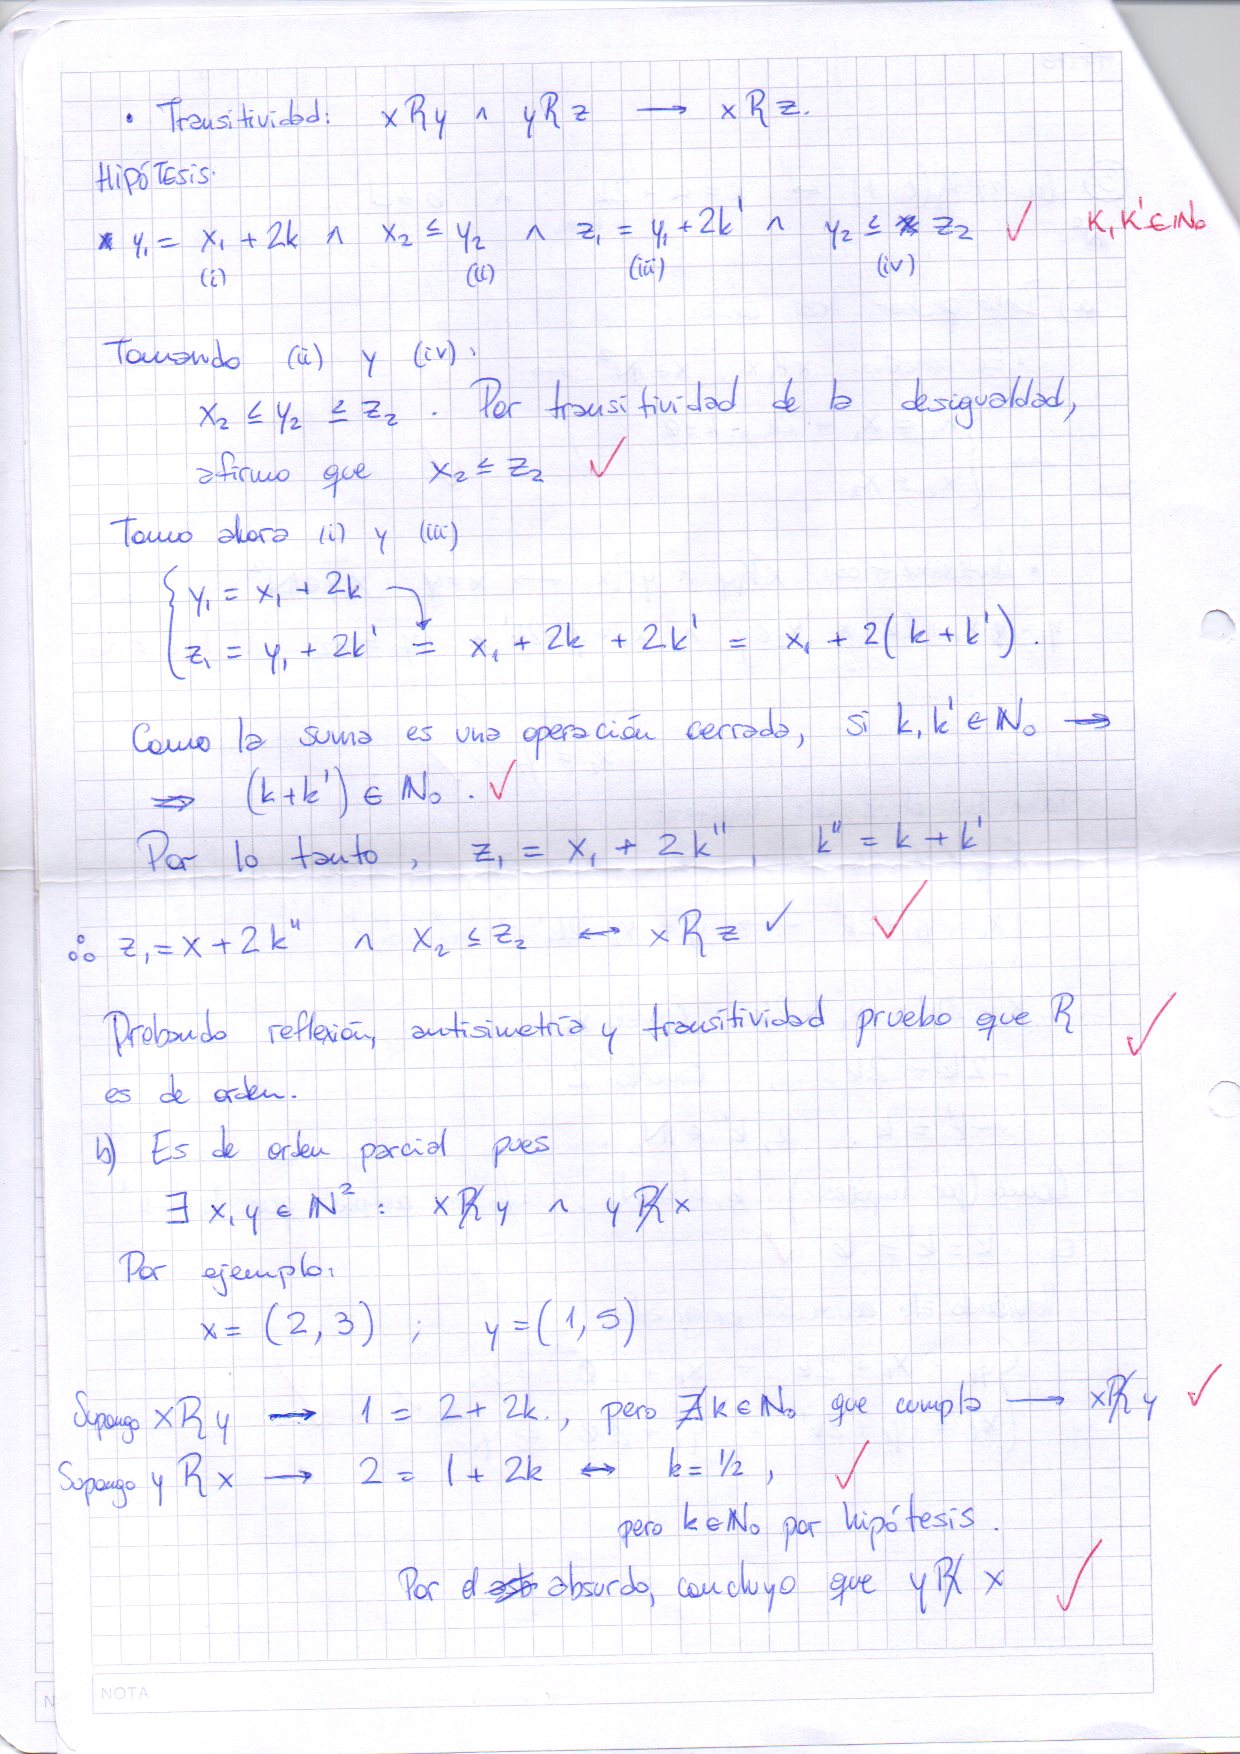 • Transitividad: xRy ∧ yRz → xRz.
HIPÓTESIS.
y₁ = x₁ + 2k ∧ x₂ ≤ y₂ ∧ z₁ = y₁ + 2k' ∧ y₂ ≤ z₂ ✓ K, K' ∈ ℕ₀
(i) (ii) (iii) (iv)
Tomando (ii) y (iv).
x₂ ≤ y₂ ≤ z₂ . Por transitividad de la desigualdad,
afirmo que x₂ ≤ z₂ ✓
Tomo ahora (i) y (iii)
y₁ = x₁ + 2k
z₁ = y₁ + 2k' = x₁ + 2k + 2k' = x₁ + 2(k + k') .
Como la suma es una operación cerrada, si k, k' ∈ ℕ₀ →
⇒ (k+k') ∈ ℕ₀ . ✓
Por lo tanto, z₁ = x₁ + 2k'' , k'' = k + k'
∴ z₁ = x + 2k'' ∧ x₂ ≤ z₂ ↔ xRz ✓ ✓
Probando reflexión, antisimetría y transitividad pruebo que R ✓
es de orden.
b) Es de orden parcial pues
∃ x, y ∈ ℕ² : xR̸y ∧ yR̸x
Por ejemplo:
x = (2, 3) ; y = (1, 5)
Supongo xRy → 1 = 2 + 2k., pero ∄ k ∈ ℕ₀ que cumpla → xR̸y ✓
Supongo yRx → 2 = 1 + 2k ↔ k = 1/2 , ✓
pero k ∈ ℕ₀ por hipótesis.
Por el absurdo, concluyo que yR̸x ✓
NOTA
N